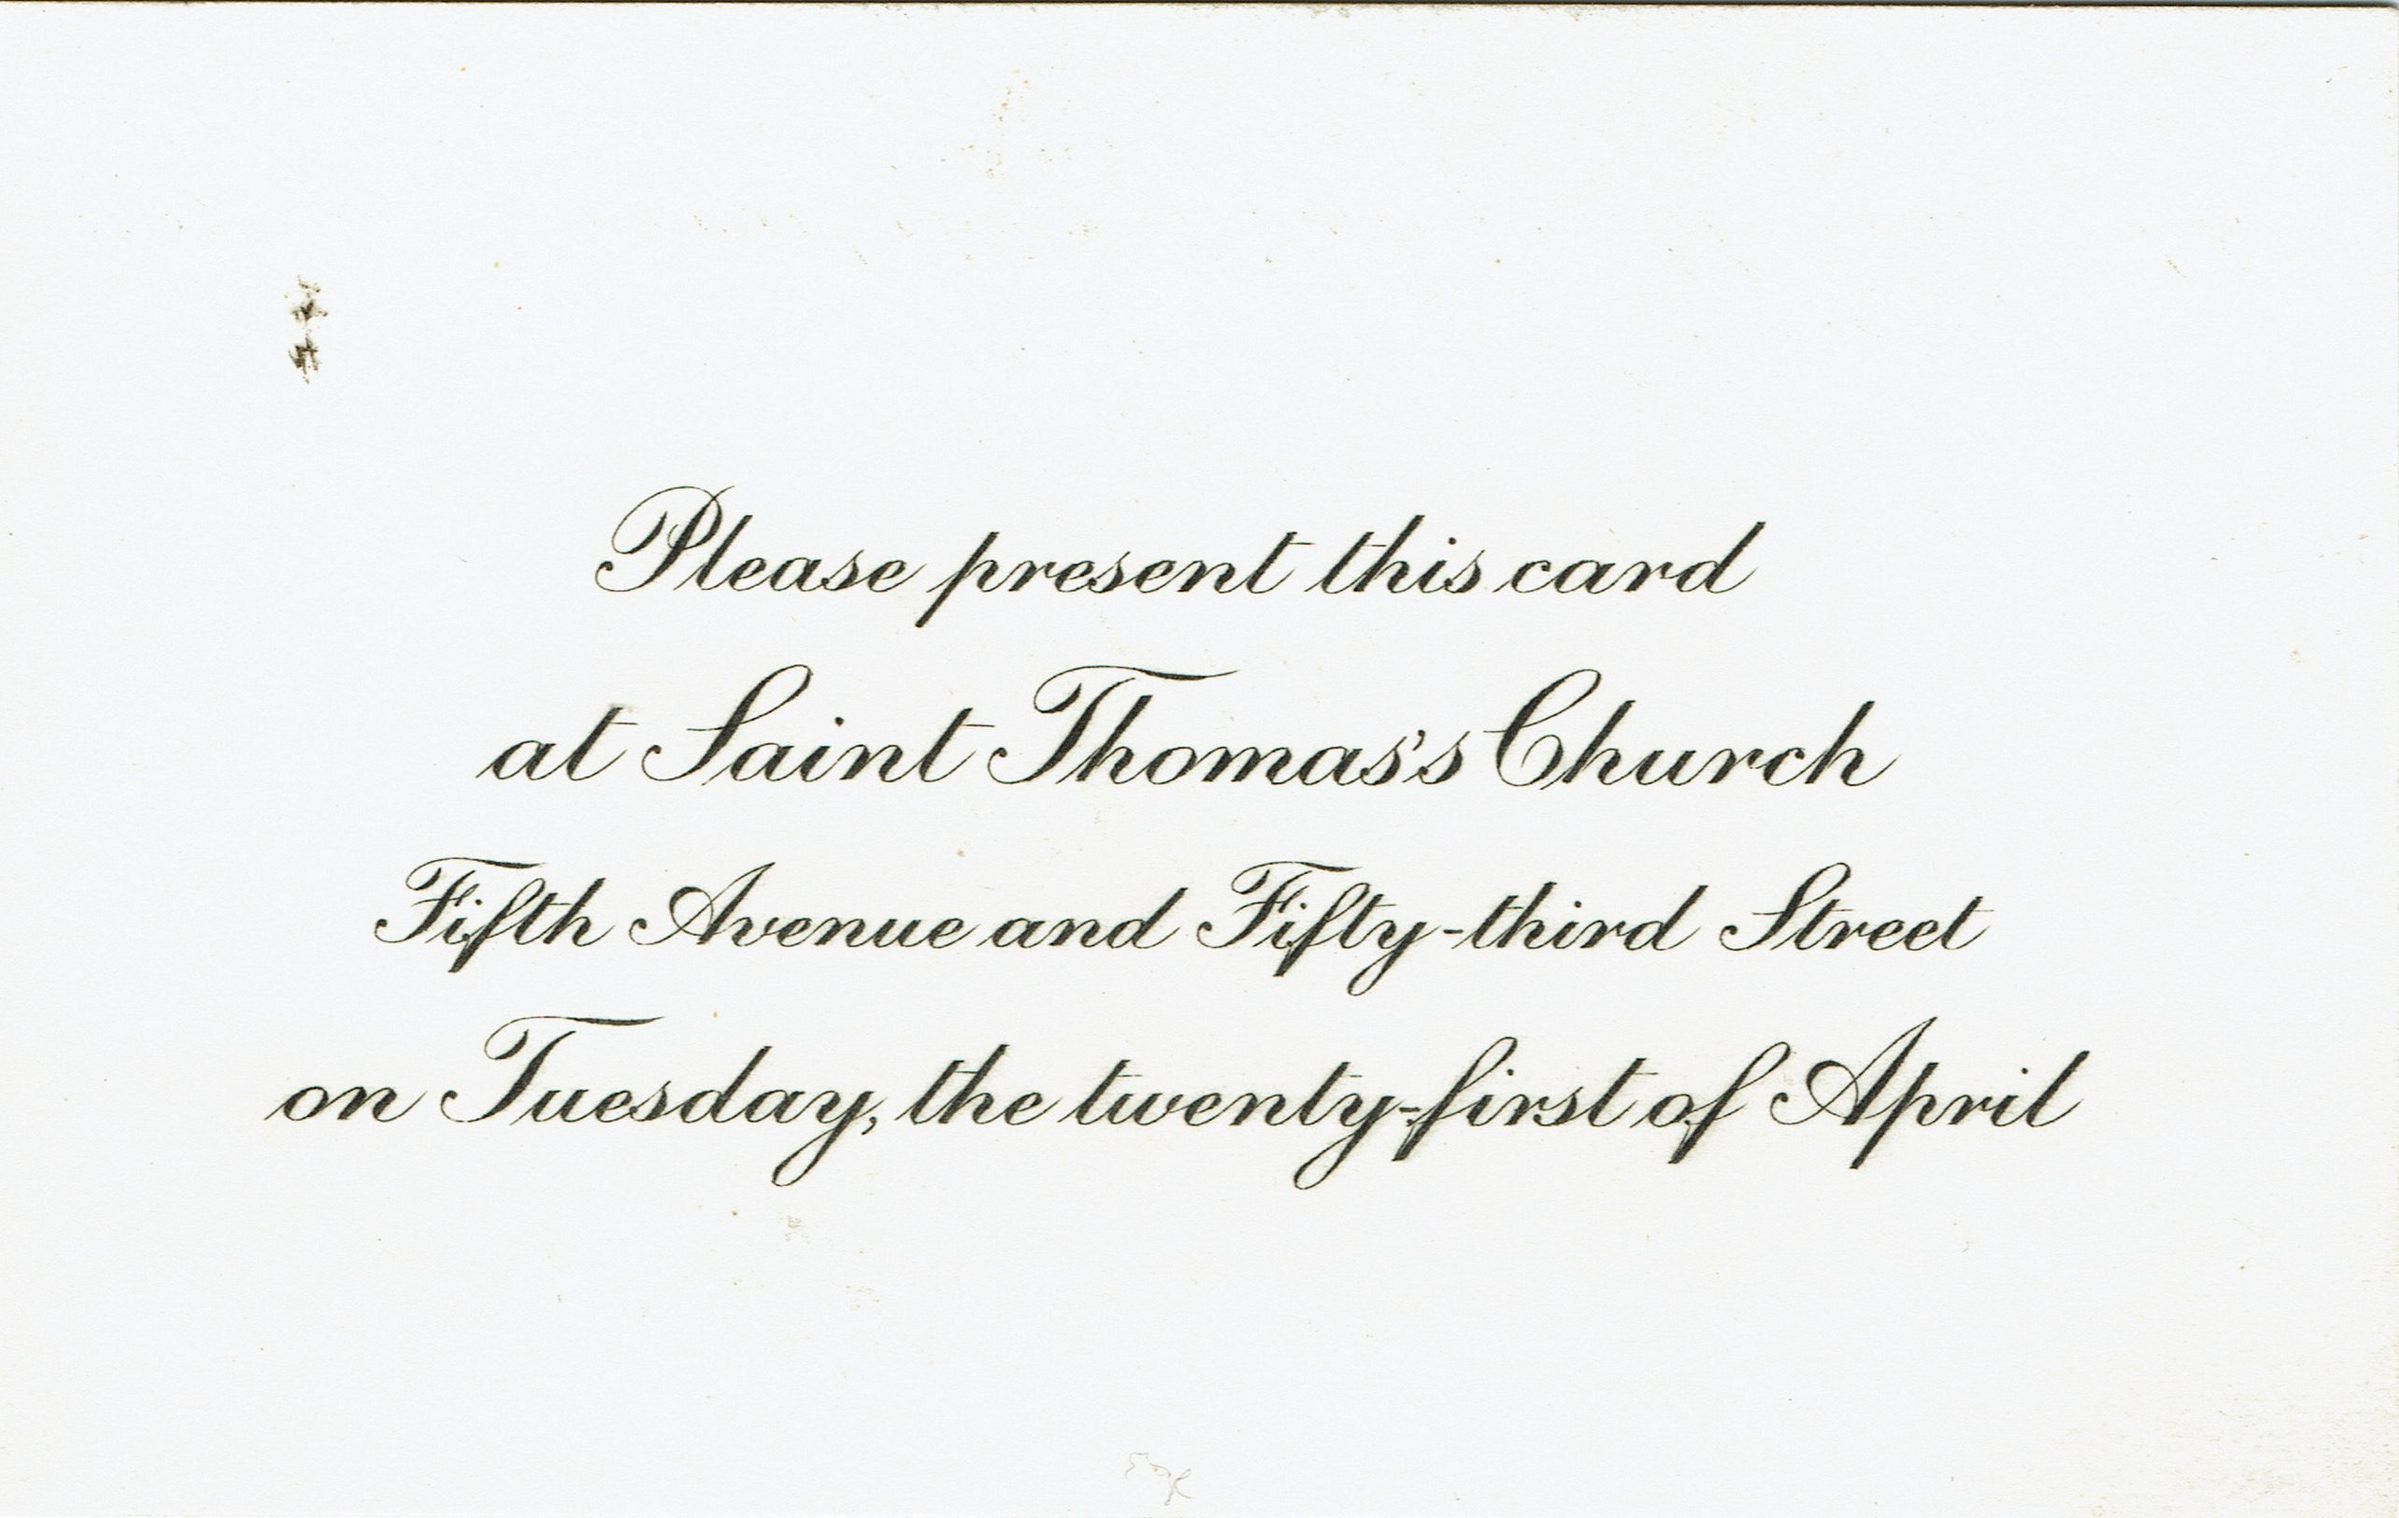 Please present this card
at Saint Thomas's Church
Fifth Avenue and Fifty-third Street
on Tuesday, the twenty-first of April